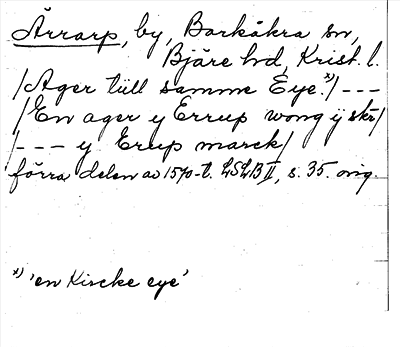 Ärrarp, by, Barkåkra sn,
Bjäre hd, Krist. l.
/Ager tiill samme Eye.x)/ ---
/En ager y Errup wong ÿ skr/
/--- y Erup marck/
förra delen av 1570-t. LSLB II, s. 35. orig.
x) 'en Kircke eye'